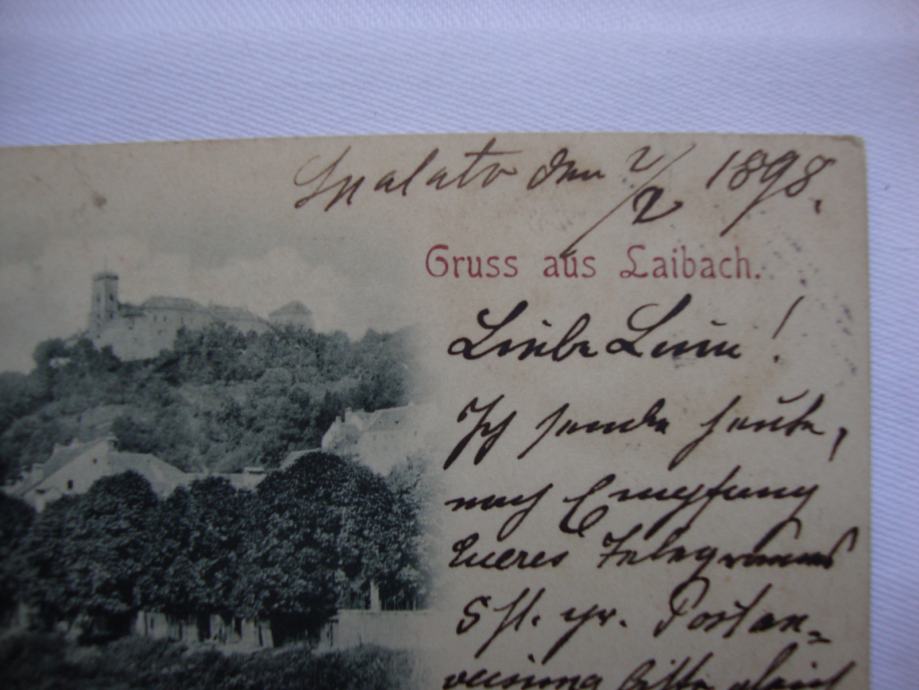 Spalato den 2/2 1898.
Gruss aus Laibach.
Liebe Luise!
Ich sende heute,
nach Empfang
Eueres Telegrammes
5 fl. pr. Postan=
weisung bitte gleich